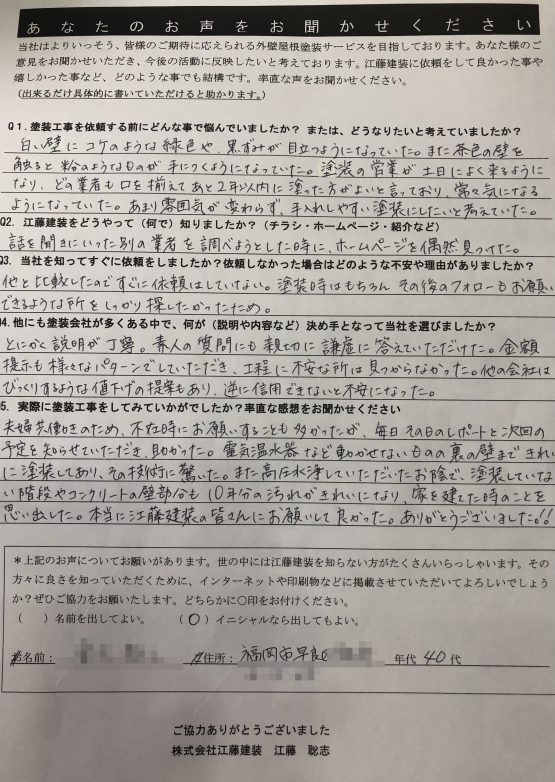 あなたのお声をお聞かせください
当社はよりいっそう、皆様のご期待に応えられる外壁屋根塗装サービスを目指しております。あなた様のご
意見をお聞かせいただき、今後の活動に反映したいと考えております。江藤建装に依頼をして良かった事や
嬉しかった事など、どのような事でも結構です。率直な声をお聞かせください。
(出来るだけ具体的に書いていただけると助かります。)
Q1.塗装工事を依頼する前にどんな事で悩んでいましたか? または、どうなりたいと考えていましたか?
白い壁にコケのような緑色や、黒ずみが目立つようになっていた。また茶色の壁を
触ると粉のようなものが手につくようになっていた。塗装の営業が土日によく来るように
なり、どの業者も口を揃えてあと2年以内に塗った方がよいと言っており、常々気になる
ようになっていた。あまり雰囲気が変わらず、手入れしやすい塗装にしたいと考えていた。
Q2. 江藤建装をどうやって(何で)知りましたか?(チラシ・ホームページ・紹介など)
話を聞きにいった別の業者を調べようとした時に、ホームページを偶然見つけた。
Q3. 当社を知ってすぐに依頼をしましたか?依頼しなかった場合はどのような不安や理由がありましたか?
他と比較したのですぐに依頼はしていない。塗装時はもちろん その後のフォローもお願い
できるような所をしっかり探したかったため。
Q4.他にも塗装会社が多くある中で、何が(説明や内容など)決め手となって当社を選びましたか?
とにかく説明が丁寧。素人の質問にも親切に謙虚に答えていただけた。金額
提示も様々なパターンでしていただき、工程に不安な所は見つからなかった。他の会社は
びっくりするような値下げの提案もあり、逆に信用できないと不安になった。
5. 実際に塗装工事をしてみていかがでしたか?率直な感想をお聞かせください
夫婦共働きのため、不在時にお願いすることも多かったが、毎日その日のレポートと次回の
予定を知らせていただき、助かった。電気温水器など動かせないものの裏の壁まできれい
に塗装してあり、その技術に驚いた。また高圧水浄していただいたお陰で、塗装していな
い階段やコンクリートの壁部分も10年分の汚れがきれいになり、家を建てた時のことを
思い出した。本当に江藤建装の皆さんにお願いして良かった。ありがとうございました!!
*上記のお声についてお願いがあります。世の中には江藤建装を知らない方がたくさんいらっしゃいます。その
方々に良さを知っていただくために、インターネットや印刷物などに掲載させていただいてよろしいでしょう
か?ぜひご協力をお願いたします。どちらかに○印をお付けください。
( )名前を出してよい。 (○)イニシャルなら出してもよい。
お名前: ご住所: 福岡市早良区 年代 40代
ご協力ありがとうございました
株式会社江藤建装 江藤 聡志